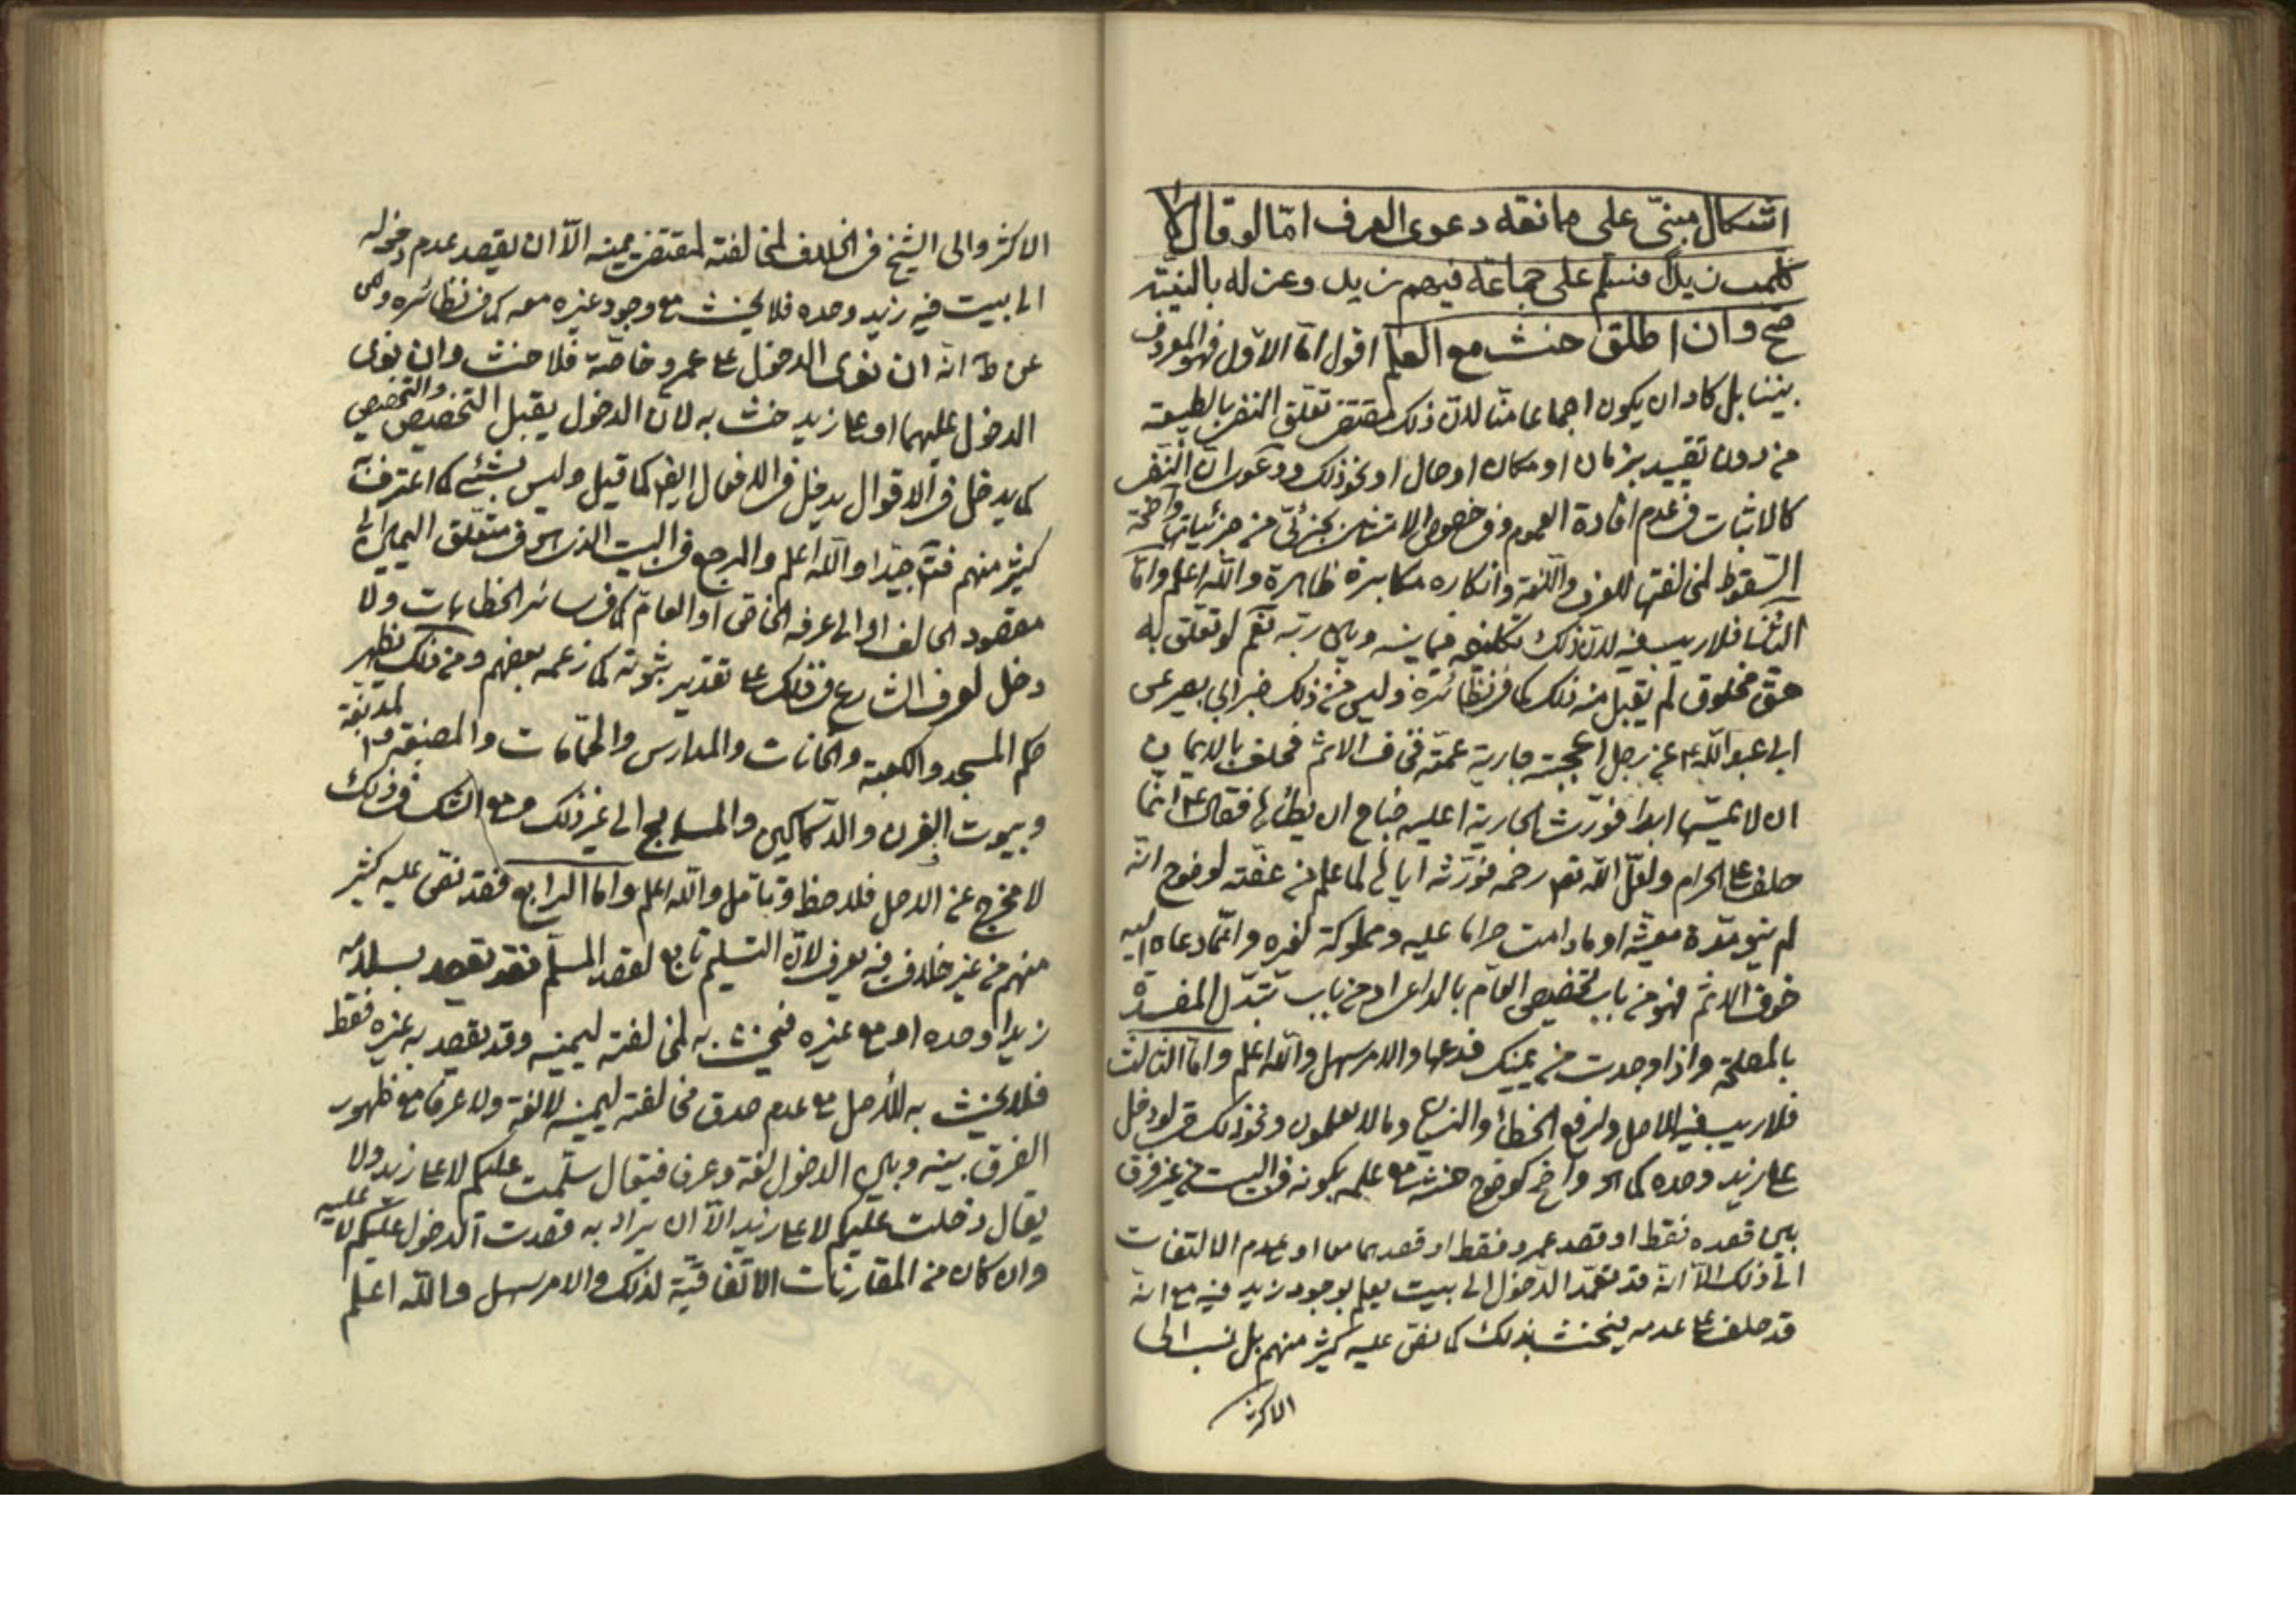 اشكال مبنىّ على مناقه دعوى العرف امّا لو قال لا
كلمت زيدا فسلم على جماعة فيهم زيد وعزله بالنيّة
صحّ وان اطلق حنث مع العلم اقول امّا الاوّل فهو المعروف
بيننا بل كاد ان يكون اجماعا منّا لانّ ذلك مقتضى تعلّق النفى بالطبيعة
من دون تقييد بزمان او مكان او حال او نحو ذلك ودعوى انّ النفى
كالاثبات فى عدم افادة العموم وفى خصوص الامتثال بجزئىّ من جزئياته واضحة
السّقوط لمخالفتها للعرف واللّغة وانكاره مكابرة ظاهرة واللّه اعلم وامّا
الثانى فلا ريب فيه لانّ ذلك تكليفه فيما بينه وبين ربّه نعم لو تعلّق به
حقّ مخلوق لم يقبل منه ذلك كما فى نظائره وليس من ذلك خبر ابى بصير عن
ابى عبد اللّه ع عن رجل اعجبته جارية عمّته فخاف الاثم فحلف بالايمان
ان لا يمسّها ابدا فورث الجارية اعليه جناح ان يطأها فقال ع انّما
حلف على الحرام ولعلّ اللّه تعم رحمه فورّثه اياها لما علم من عفّته لوضوح انّه
لم ينو مدّة معيّنة او ما دامت حراما عليه ومملوكة لغيره وانّما دعاه اليه
خوف الاثم فهو من باب تخصيص العام بالداعى او من باب تبدّل المفسدة
بالمصلحة واذا وجدت من يمينك فدعها والامر سهل واللّه اعلم وامّا الثالث
فلا ريب فيه للاصل ولرفع الخطأ والنسيان وما لا يعلمون ونحو ذلك لو دخل
على زيد وحده كما واضح كوضوح حنثه مع علمه بكونه فى البيت من غير فرق
بين قصده فقط او قصد عمرو فقط او قصدهما معا او عدم الالتفات
الى ذلك الّا انّه قد تعمّد الدّخول الى بيت يعلم بوجود زيد فيه مع انّه
قد حلف على عدمه فيحنث بذلك كما نصّ عليه كثير منهم بل نسب الى
الاكثر
الاكثر والى الشيخ فى الخلاف لمخالفته لمقتضى يمينه الّا ان يقصد عدم دخوله
الى بيت فيه زيد وحده فلا يحنث مع وجود غيره معه كما فى نظائره وعن
عن ط انّه ان نوى الدخول على عمرو خاصّة فلا حنث وان نوى
الدخول عليهما او على زيد حنث به لانّ الدخول يقبل التخصيص والتخصيص
كما يدخل فى الاقوال يدخل فى الافعال ايضا كما قيل وليس بشئ كما اعترف به
كثير منهم فتأمّل جيّدا واللّه اعلم والمرجع فى البيت الذى هو فى متعلّق اليمين الى
مقصود الحالف او الى عرفه الخاصّ او العامّ كما فى سائر الخطابات ولا
دخل لعرف الشارع فى ذلك على تقدير ثبوته كما زعمه بعضهم ومن ذلك يظهر
حكم المسجد والكعبة والخانات والمدارس والحمّامات والمصبغة والمدبغة
وبيوت الفرن والدّكاكين والمسابح الى غير ذلك ومع الشكّ فى ذلك
لا مخرج عن الاصل فلاحظ وتأمّل واللّه اعلم وامّا الرابع فقد نصّ عليه كثير
منهم من غير خلاف فيه يعرف لانّ التسليم تابع لقصد المسلّم فقد يقصد بسلامه
زيدا وحده او مع غيره فيحنث به لمخالفته ليمينه وقد يقصد به غيره فقط
فلا يحنث به للأصل مع عدم صدق مخالفته ليمينه لا لغة ولا عرفا مع ظهور
الفرق بينه وبين الدخول لغة وعرفا فيقال سلّمت عليكم لا على زيد ولا
يقال دخلت عليكم لا على زيد الّا ان يراد به قصدت الدخول عليكم لا عليه
وان كان من المقارنات الاتّفاقيّة لذلك والامر سهل واللّه اعلم